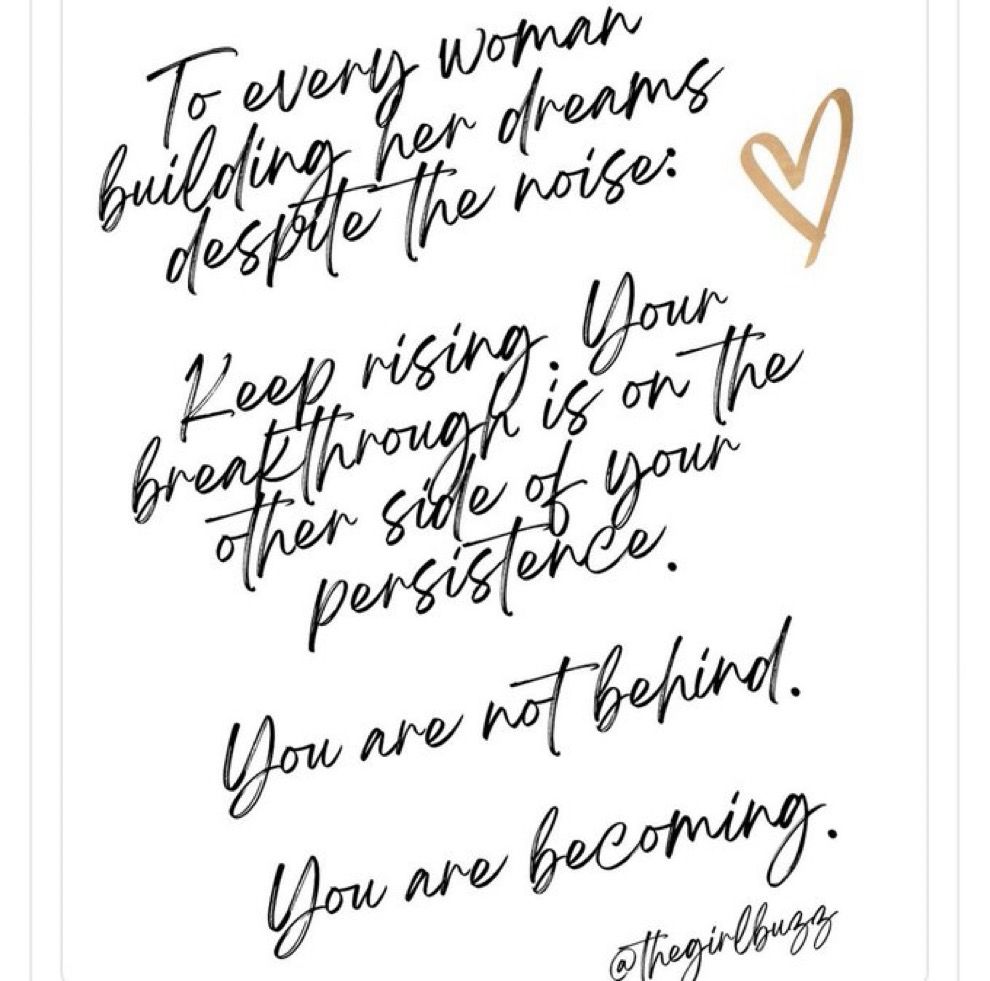 To every woman
building her dreams
despite the noise:
Keep rising. Your
breakthrough is on the
other side of your
persistence.
You are not behind.
You are becoming.
@thegirlbuzz